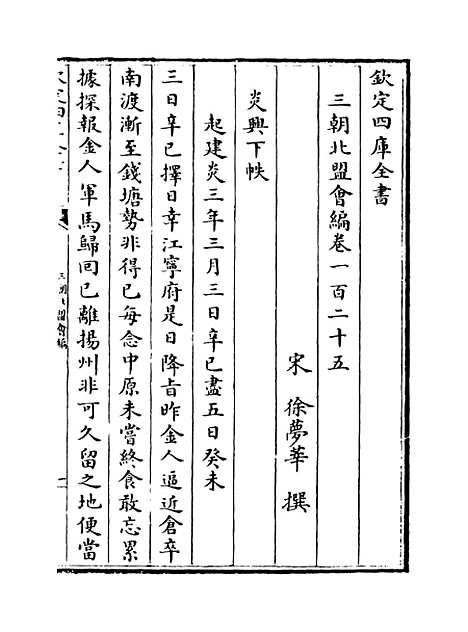 欽定四庫全書
三朝北盟會編卷一百二十五
宋 徐夢莘 撰
炎興下帙
起建炎三年三月三日辛巳盡五日癸未
三日辛已擇日幸江寧府是日降㫖昨金人逼近倉卒
南渡漸至錢塘勢非得已每念中原未嘗終食敢忘累
據探報金人軍馬歸囘已離揚州非可久留之地便當
三朝北盟會編
一